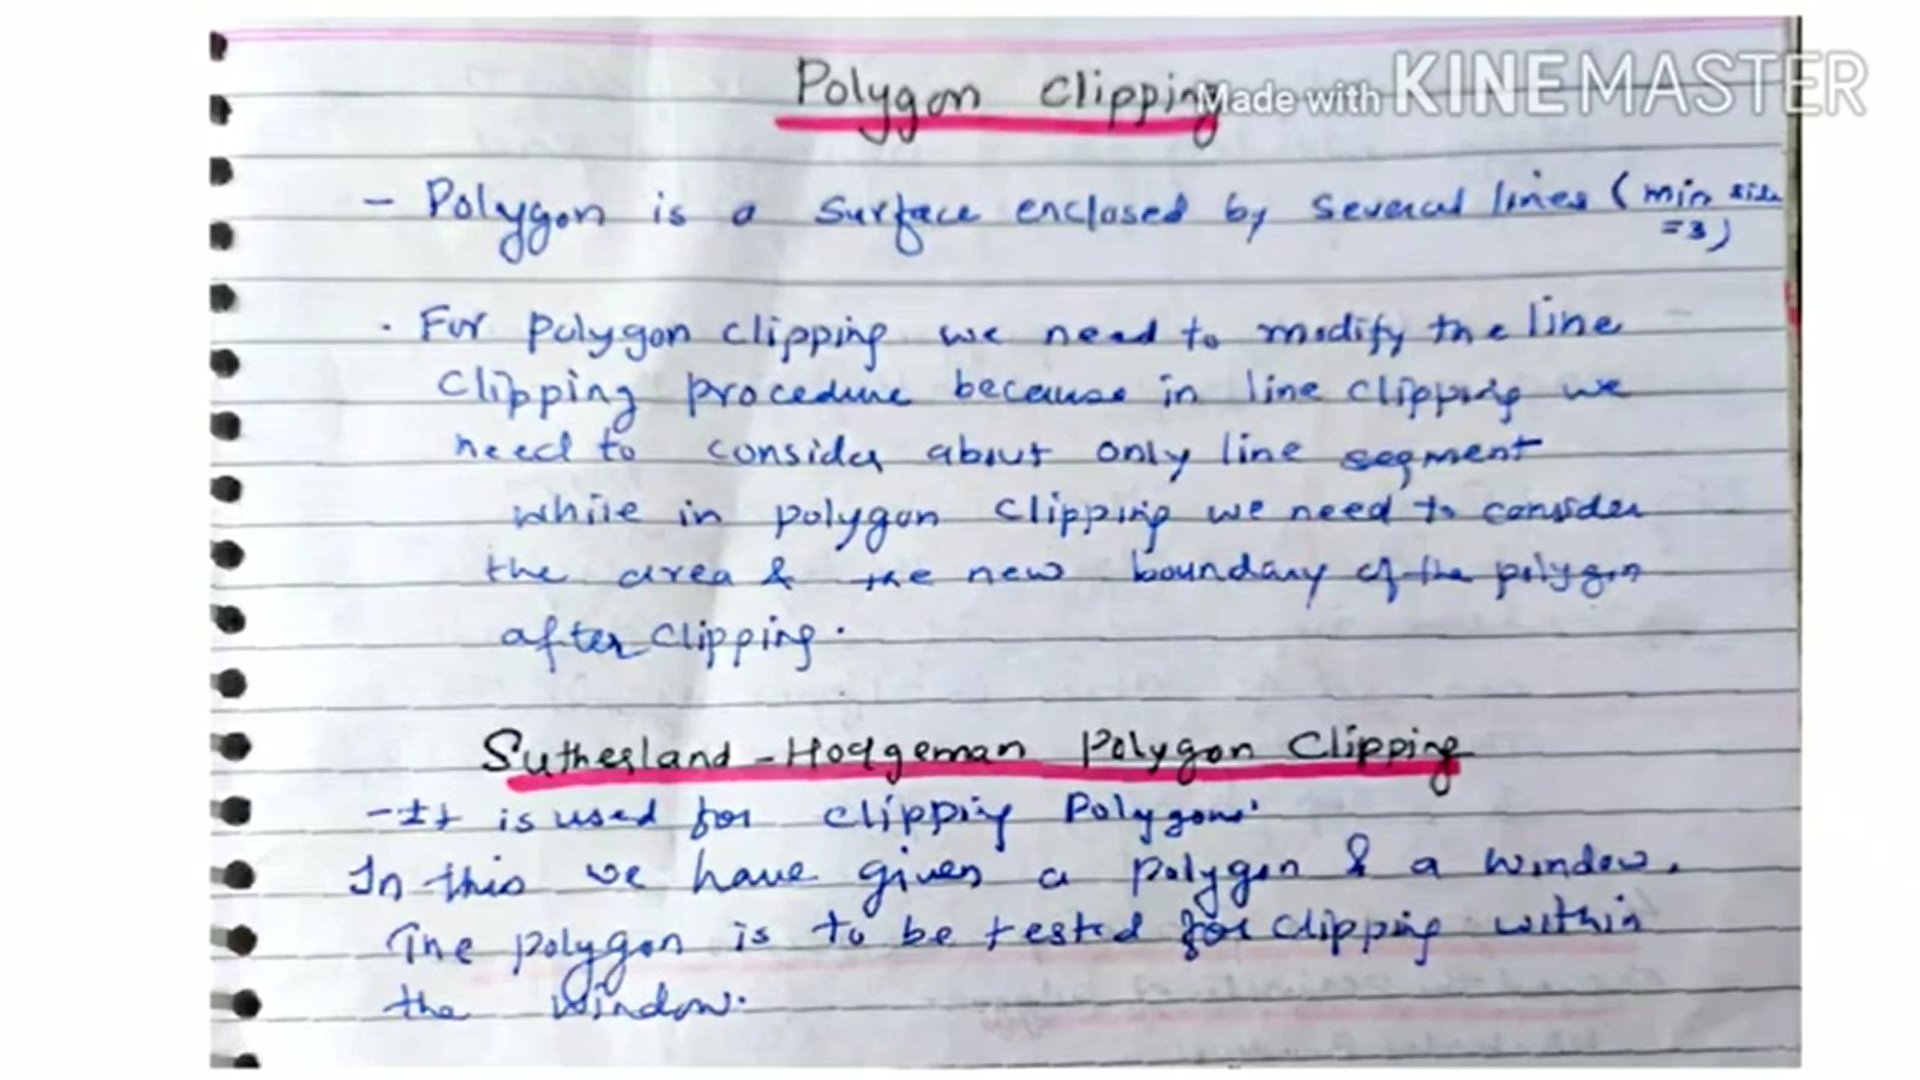 Polygon Clipping
Made with KINEMASTER
- Polygon is a surface enclosed by several lines (min side
=3)
. For polygon clipping we need to modify the line
Clipping procedure because in line clipping we
need to consider about only line segment
while in polygon clipping we need to consider
the area & the new boundary of the polygon
after clipping.
Sutherland-Hodgeman Polygon Clipping
- It is used for clipping Polygons.
In this we have given a polygon & a window.
The polygon is to be tested for clipping within
the window.